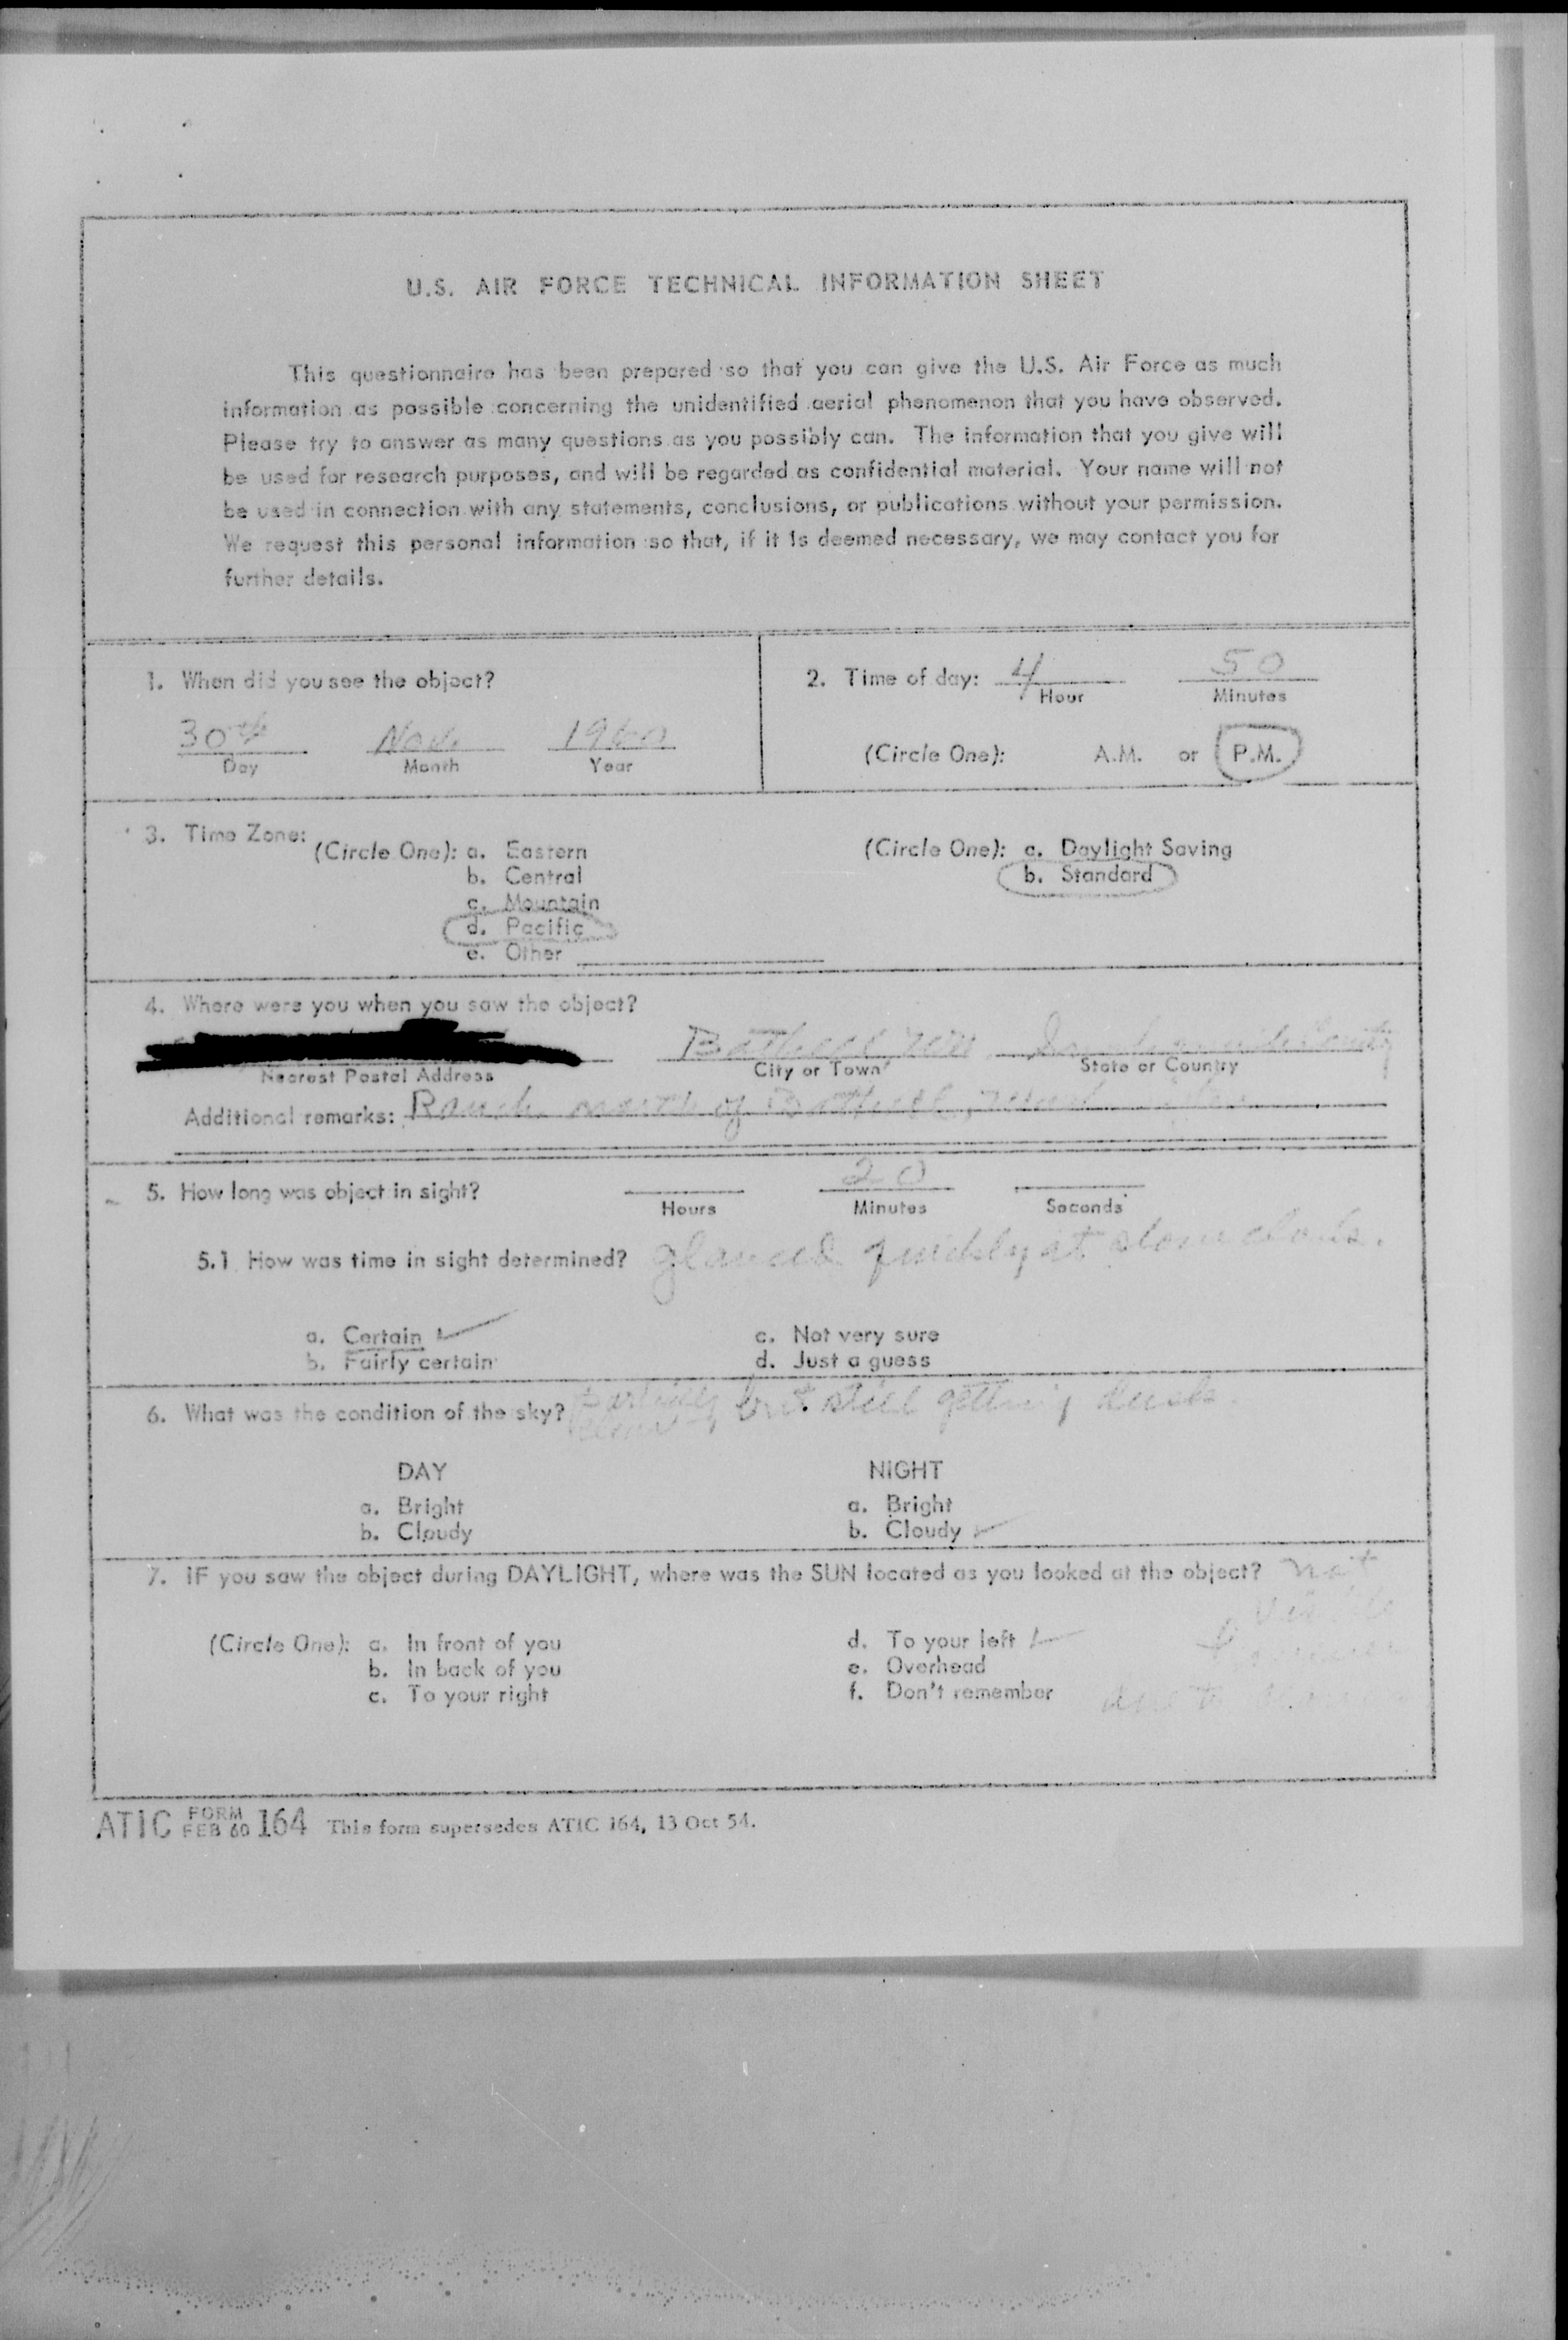 U.S. AIR FORCE TECHNICAL INFORMATION SHEET
This questionnaire has been prepared so that you can give the U.S. Air Force as much
information as possible concerning the unidentified aerial phenomenon that you have observed.
Please try to answer as many questions as you possibly can. The information that you give will
be used for research purposes, and will be regarded as confidential material. Your name will not
be used in connection with any statements, conclusions, or publications without your permission.
We request this personal information so that, if it is deemed necessary, we may contact you for
further details.
1. When did you see the object?
30th Nov. 1960
Day Month Year
2. Time of day: 4 50
Hour Minutes
(Circle One): A.M. or P.M.
3. Time Zone:
(Circle One): a. Eastern
b. Central
c. Mountain
d. Pacific
e. Other
(Circle One): a. Daylight Saving
b. Standard
4. Where were you when you saw the object?
Bothell
Nearest Postal Address City or Town State or Country
Additional remarks: Ranch north of Bothell,
5. How long was object in sight? 20
Hours Minutes Seconds
5.1 How was time in sight determined? glanced quickly at clocks.
a. Certain
b. Fairly certain
c. Not very sure
d. Just a guess
6. What was the condition of the sky? partially but still getting dusk
DAY
a. Bright
b. Cloudy
NIGHT
a. Bright
b. Cloudy
7. IF you saw the object during DAYLIGHT, where was the SUN located as you looked at the object? not
visible
(Circle One): a. In front of you
b. In back of you
c. To your right
d. To your left
e. Overhead
f. Don't remember
due to
ATIC FORM FEB 60 164 This form supersedes ATIC 164, 13 Oct 54.